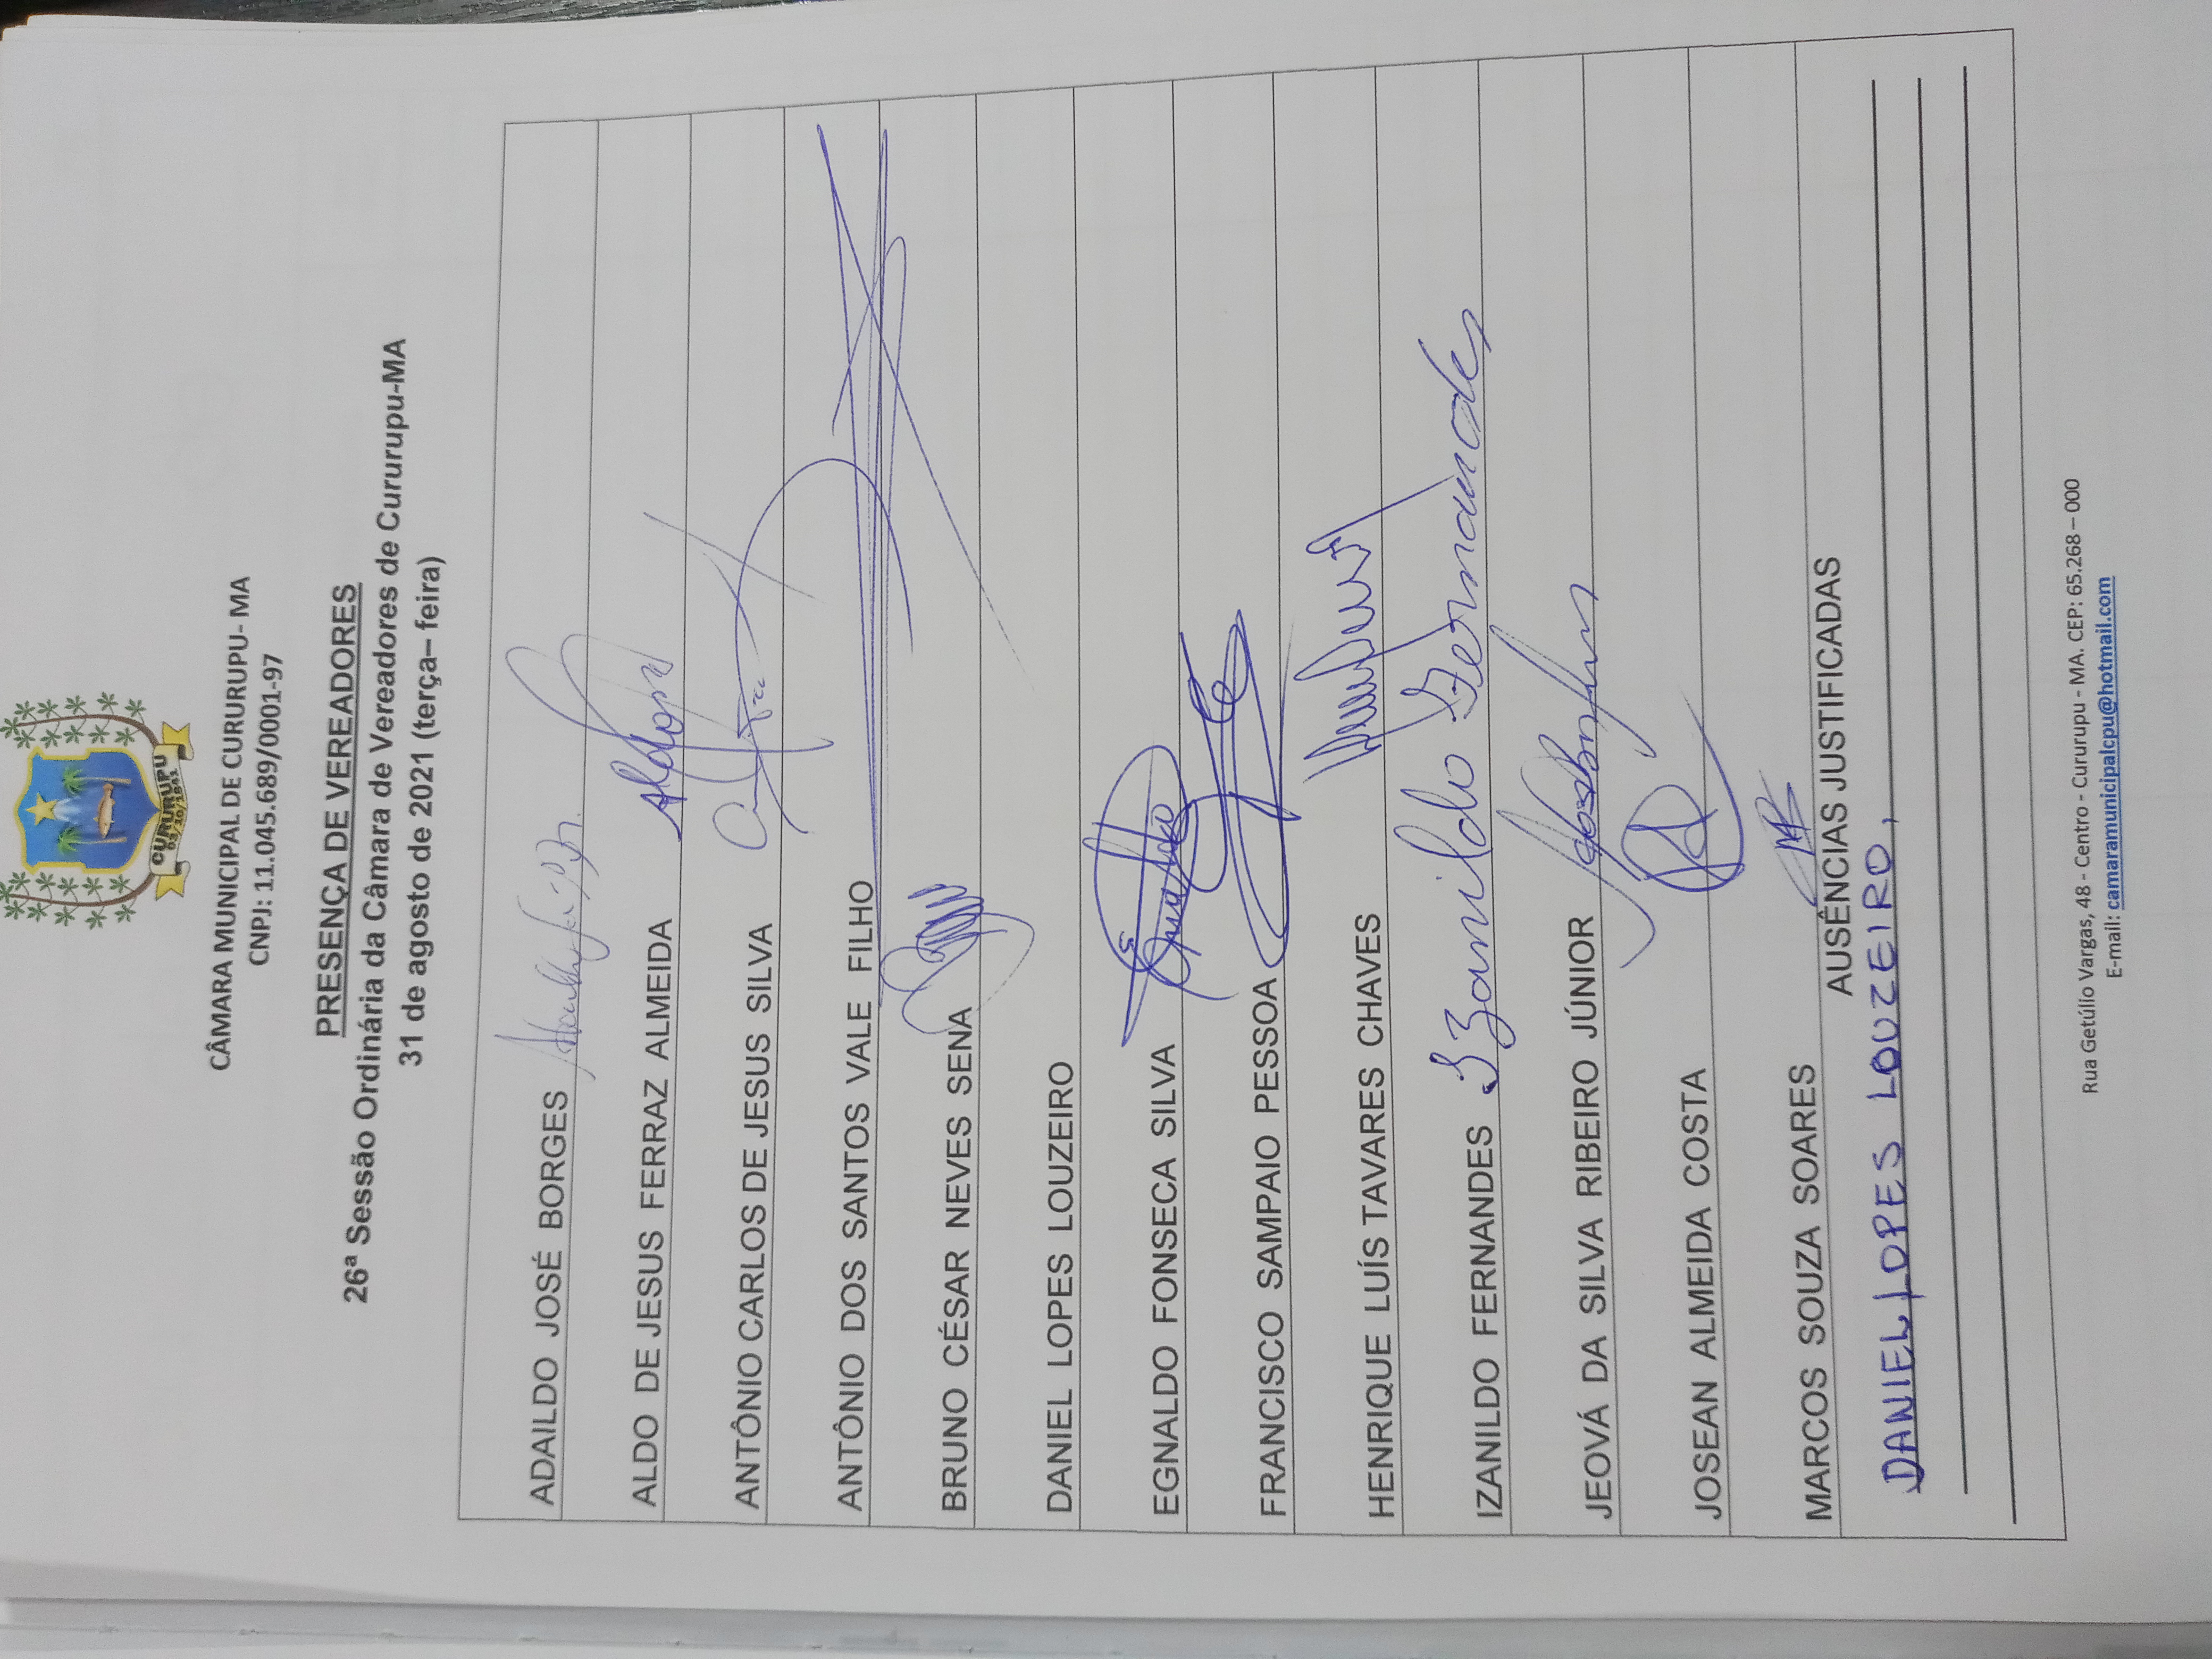 CURURUPU
03/10/1841
CÂMARA MUNICIPAL DE CURURUPU- MA
CNPJ: 11.045.689/0001-97
PRESENÇA DE VEREADORES
26ª Sessão Ordinária da Câmara de Vereadores de Cururupu-MA
31 de agosto de 2021 (terça– feira)
ADAILDO JOSÉ BORGES
ALDO DE JESUS FERRAZ ALMEIDA Aldo
ANTÔNIO CARLOS DE JESUS SILVA
ANTÔNIO DOS SANTOS VALE FILHO
BRUNO CÉSAR NEVES SENA
DANIEL LOPES LOUZEIRO
EGNALDO FONSECA SILVA
FRANCISCO SAMPAIO PESSOA
HENRIQUE LUÍS TAVARES CHAVES
IZANILDO FERNANDES Izanildo Fernandes
JEOVÁ DA SILVA RIBEIRO JÚNIOR
JOSEAN ALMEIDA COSTA
MARCOS SOUZA SOARES
AUSÊNCIAS JUSTIFICADAS
DANIEL LOPES LOUZEIRO,
Rua Getúlio Vargas, 48 - Centro - Cururupu - MA. CEP: 65.268 – 000
E-mail: camaramunicipalcpu@hotmail.com